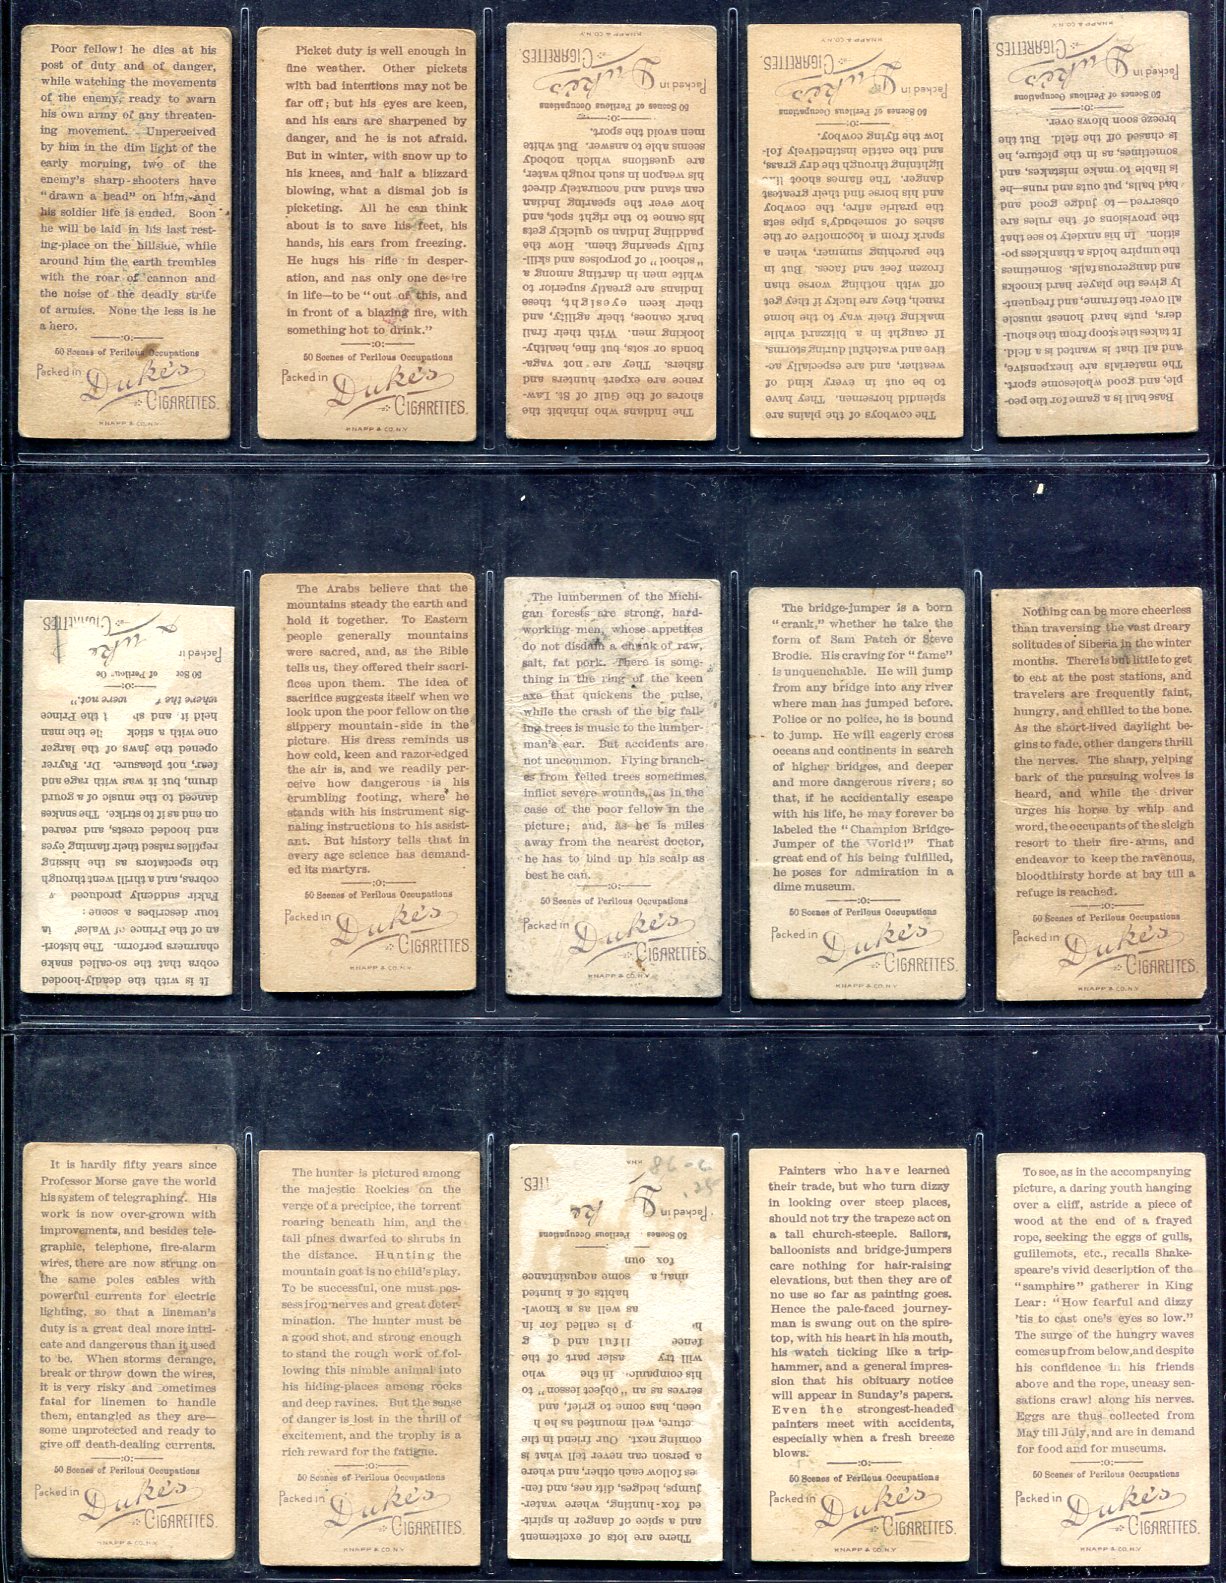 Poor fellow! he dies at his
post of duty and of danger,
while watching the movements
of the enemy, ready to warn
his own army of any threaten-
ing movement. Unperceived
by him in the dim light of the
early morning, two of the
enemy's sharp-shooters have
"drawn a bead" on him, and
his soldier life is ended. Soon
he will be laid in his last rest-
ing-place on the hillside, while
around him the earth trembles
with the roar of cannon and
the noise of the deadly strife
of armies. None the less is he
a hero.
:o:
50 Scenes of Perilous Occupations
Packed in
Duke's
CIGARETTES.
KNAPP & CO. N.Y
Picket duty is well enough in
fine weather. Other pickets
with bad intentions may not be
far off; but his eyes are keen,
and his ears are sharpened by
danger, and he is not afraid.
But in winter, with snow up to
his knees, and half a blizzard
blowing, what a dismal job is
picketing. All he can think
about is to save his feet, his
hands, his ears from freezing.
He hugs his rifle in desper-
ation, and has only one desire
in life—to be "out of this, and
in front of a blazing fire, with
something hot to drink."
:o:
50 Scenes of Perilous Occupations
Packed in
Duke's
CIGARETTES.
KNAPP & CO. N.Y
The Indians who inhabit the
shores of the Gulf of St. Law-
rence are expert hunters and
fishers. They are not vaga-
bonds or sots, but fine, healthy-
looking men. With their frail
bark canoes, their agility, and
their keen eyesight, these
Indians are greatly superior to
white men in darting among a
"school" of porpoises and skill-
fully spearing them. How the
paddling Indian so quickly gets
his canoe to the right spot, and
how ever the spearing Indian
can stand and accurately direct
his weapon in such rough water,
are questions which nobody
seems able to answer. But white
men avoid the sport.
:o:
50 Scenes of Perilous Occupations
Packed in
Duke's
CIGARETTES.
KNAPP & CO. N.Y
The cowboys of the plains are
splendid horsemen. They have
to be out in every kind of
weather, and are especially ac-
tive and watchful during storms.
If caught in a blizzard while
making their way to the home
ranch, they are lucky if they get
off with nothing worse than
frozen feet and faces. But in
the parching summer, when a
spark from a locomotive or the
ashes of somebody's pipe sets
the prairie afire, the cowboy
and his horse find their greatest
danger. The flames shoot like
lightning through the dry grass,
and the cattle instinctively fol-
low the flying cowboy.
:o:
50 Scenes of Perilous Occupations
Packed in
Duke's
CIGARETTES.
KNAPP & CO. N.Y
Base ball is a game for the peo-
ple, and good wholesome sport.
The materials are inexpensive,
and all that is wanted is a field.
It takes the stoop from the shoul-
ders, puts hard honest muscle
all over the frame, and frequent-
ly gives the player hard knocks
and dangerous falls. Sometimes
the umpire holds a thankless po-
sition. In his anxiety to see that
the provisions of the rules are
observed—to judge good and
bad balls, put outs and runs—he
is liable to make mistakes, and
sometimes, as in the picture, he
is chased off the field. But the
breeze soon blows over.
:o:
50 Scenes of Perilous Occupations
Packed in
Duke's
CIGARETTES.
KNAPP & CO. N.Y
It is with the deadly-hooded
cobra that the so-called snake
charmers perform. The histori-
an of the Prince of Wales'
tour describes a scene:
Fakir suddenly produced
cobras, and a thrill went through
the spectators as the hissing
reptiles raised their flaming eyes
and hooded crests, and reared
on end as if to strike. The snakes
danced to the music of a gourd
drum, but it was with rage and
fear, not pleasure. Dr. Fayrer
opened the jaws of the larger
one with a stick the man
held it, and the Prince
where the were not."
:o:
50 of Perilous
Packed in
Duke
CIGARETTES.
The Arabs believe that the
mountains steady the earth and
hold it together. To Eastern
people generally mountains
were sacred, and, as the Bible
tells us, they offered their sacri-
fices upon them. The idea of
sacrifice suggests itself when we
look upon the poor fellow on the
slippery mountain-side in the
picture. His dress reminds us
how cold, keen and razor-edged
the air is, and we readily per-
ceive how dangerous is his
crumbling footing, where he
stands with his instrument sig-
naling instructions to his assist-
ant. But history tells that in
every age science has demand-
ed its martyrs.
:o:
50 Scenes of Perilous Occupations
Packed in
Duke's
CIGARETTES.
KNAPP & CO. N.Y
The lumbermen of the Michi-
gan forests are strong, hard-
working men, whose appetites
do not disdain a chunk of raw,
salt, fat pork. There is some-
thing in the ring of the keen
axe that quickens the pulse,
while the crash of the big fall-
ing trees is music to the lumber-
man's ear. But accidents are
not uncommon. Flying branch-
es from felled trees sometimes
inflict severe wounds, as in the
case of the poor fellow in the
picture; and, as he is miles
away from the nearest doctor,
he has to bind up his scalp as
best he can.
:o:
50 Scenes of Perilous Occupations
Packed in
Duke's
CIGARETTES.
KNAPP & CO. N.Y
The bridge-jumper is a born
"crank," whether he take the
form of Sam Patch or Steve
Brodie. His craving for "fame"
is unquenchable. He will jump
from any bridge into any river
where man has jumped before.
Police or no police, he is bound
to jump. He will eagerly cross
oceans and continents in search
of higher bridges, and deeper
and more dangerous rivers; so
that, if he accidentally escape
with his life, he may forever be
labeled the "Champion Bridge-
Jumper of the World!" That
great end of his being fulfilled,
he poses for admiration in a
dime museum.
:o:
50 Scenes of Perilous Occupations
Packed in
Duke's
CIGARETTES.
KNAPP & CO. N.Y
Nothing can be more cheerless
than traversing the vast dreary
solitudes of Siberia in the winter
months. There is but little to get
to eat at the post stations, and
travelers are frequently faint,
hungry, and chilled to the bone.
As the short-lived daylight be-
gins to fade, other dangers thrill
the nerves. The sharp, yelping
bark of the pursuing wolves is
heard, and while the driver
urges his horse by whip and
word, the occupants of the sleigh
resort to their fire-arms, and
endeavor to keep the ravenous,
bloodthirsty horde at bay till a
refuge is reached.
:o:
50 Scenes of Perilous Occupations
Packed in
Duke's
CIGARETTES.
KNAPP & CO. N.Y
It is hardly fifty years since
Professor Morse gave the world
his system of telegraphing. His
work is now over-grown with
improvements, and besides tele-
graphic, telephone, fire-alarm
wires, there are now strung on
the same poles cables with
powerful currents for electric
lighting, so that a lineman's
duty is a great deal more intri-
cate and dangerous than it used
to be. When storms derange,
break or throw down the wires,
it is very risky and sometimes
fatal for linemen to handle
them, entangled as they are—
some unprotected and ready to
give off death-dealing currents.
:o:
50 Scenes of Perilous Occupations
Packed in
Duke's
CIGARETTES.
KNAPP & CO. N.Y
The hunter is pictured among
the majestic Rockies on the
verge of a precipice, the torrent
roaring beneath him, and the
tall pines dwarfed to shrubs in
the distance. Hunting the
mountain goat is no child's play.
To be successful, one must pos-
sess iron nerves and great deter-
mination. The hunter must be
a good shot, and strong enough
to stand the rough work of fol-
lowing this nimble animal into
his hiding-places among rocks
and deep ravines. But the sense
of danger is lost in the thrill of
excitement, and the trophy is a
rich reward for the fatigue.
:o:
50 Scenes of Perilous Occupations
Packed in
Duke's
CIGARETTES.
KNAPP & CO. N.Y
There are lots of excitement
and a spice of danger in spirit-
ed fox-hunting, where water-
jumps, hedges, ditches, and fen-
ces follow each other, and where
a person can never tell what is
coming next. Our friend in the
picture, well mounted as he h
been, has come to grief, and
serves as an "object lesson" to
his companions in the who
will try easier part of the
fence and
is called for in
as well as a knowl-
habits of a hunted
some acquaintance
fox
50 Scenes Perilous Occupations
Packed in
D ke
TTES.
KNA
25.
2-98
Painters who have learned
their trade, but who turn dizzy
in looking over steep places,
should not try the trapeze act on
a tall church-steeple. Sailors,
balloonists and bridge-jumpers
care nothing for hair-raising
elevations, but then they are of
no use so far as painting goes.
Hence the pale-faced journey-
man is swung out on the spire-
top, with his heart in his mouth,
his watch ticking like a trip-
hammer, and a general impres-
sion that his obituary notice
will appear in Sunday's papers.
Even the strongest-headed
painters meet with accidents,
especially when a fresh breeze
blows.
:o:
50 Scenes of Perilous Occupations
Packed in
Duke's
CIGARETTES.
KNAPP & CO. N.Y
To see, as in the accompanying
picture, a daring youth hanging
over a cliff, astride a piece of
wood at the end of a frayed
rope, seeking the eggs of gulls,
guillemots, etc., recalls Shake-
speare's vivid description of the
"samphire" gatherer in King
Lear: "How fearful and dizzy
'tis to cast one's eyes so low."
The surge of the hungry waves
comes up from below, and despite
his confidence in his friends
above and the rope, uneasy sen-
sations crawl along his nerves.
Eggs are thus collected from
May till July, and are in demand
for food and for museums.
:o:
50 Scenes of Perilous Occupations
Packed in
Duke's
CIGARETTES.
KNAPP & CO. N.Y